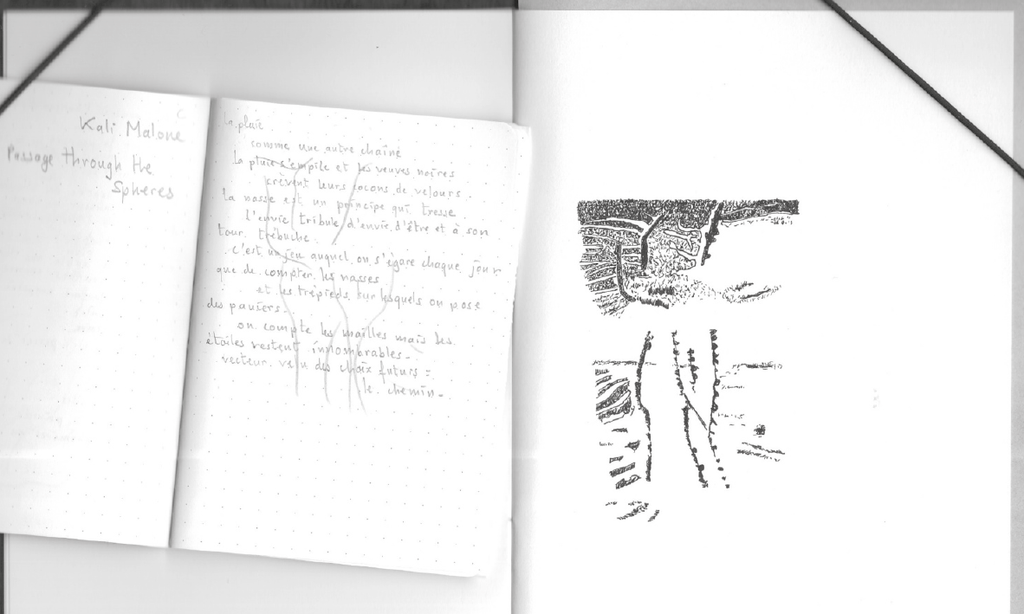 Kali Malone
Passage through the
Spheres
La pluie
comme une autre chaîne
la pluie s'empile et les veuves noires
crèvent leurs cocons de velours.
la nasse est un principe qui tresse
l'envie tribule d'envie d'être et à son
tour trébuche.
c'est un jeu auquel on s'égare chaque jour
que de compter les nasses
et les trépieds sur lesquels on pose
des paniers.
on compte les mailles mais les
étoiles restent innombrables.
vecteur des choix futurs =
le chemin.